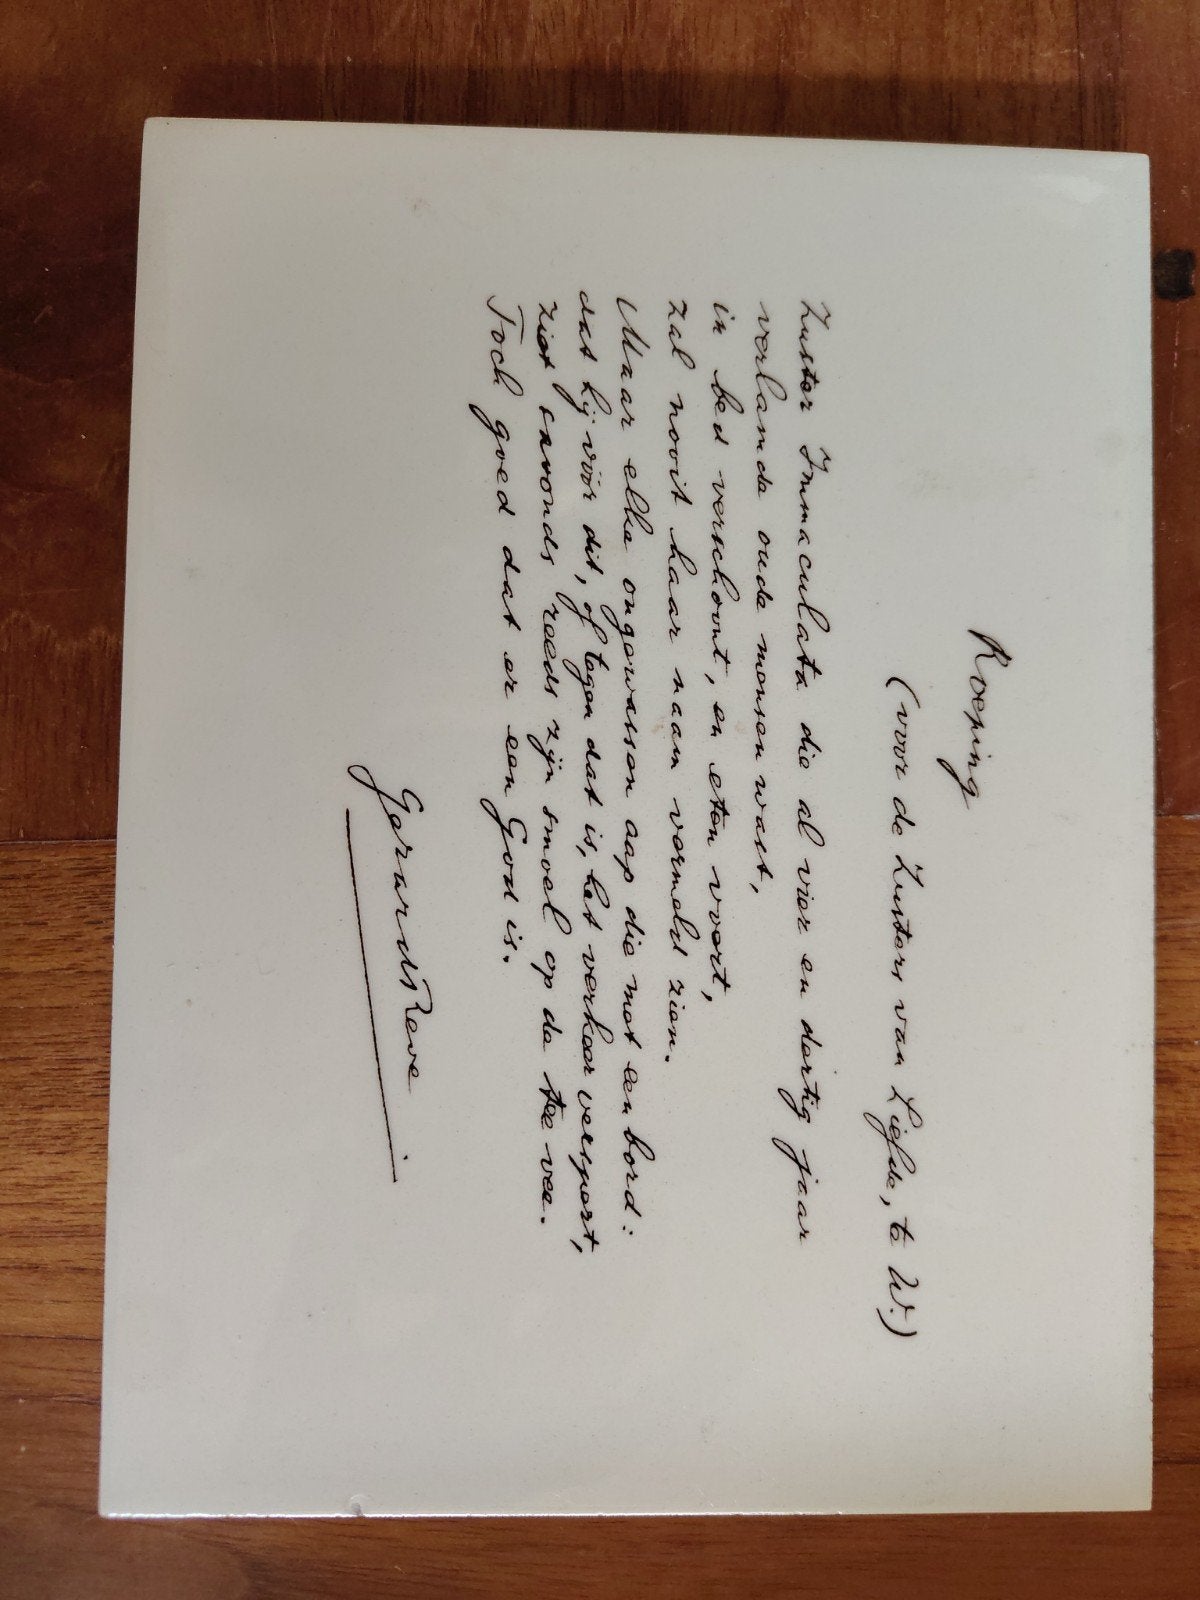 Roeping
(voor de Zusters van Liefde, te W.)
Zuster Immaculata die al vier en dertig jaar
verlamde oude mensen wast,
in bed verschoont, en eten voert,
zal nooit haar naam vermeld zien.
Maar elke ongewassen aap die met een bord:
dat hij vóór dit, of tegen dat is, het verkeer verspert,
ziet savonds reeds zijn smoel op de tee vee.
Toch goed dat er een God is.
Gerard Reve